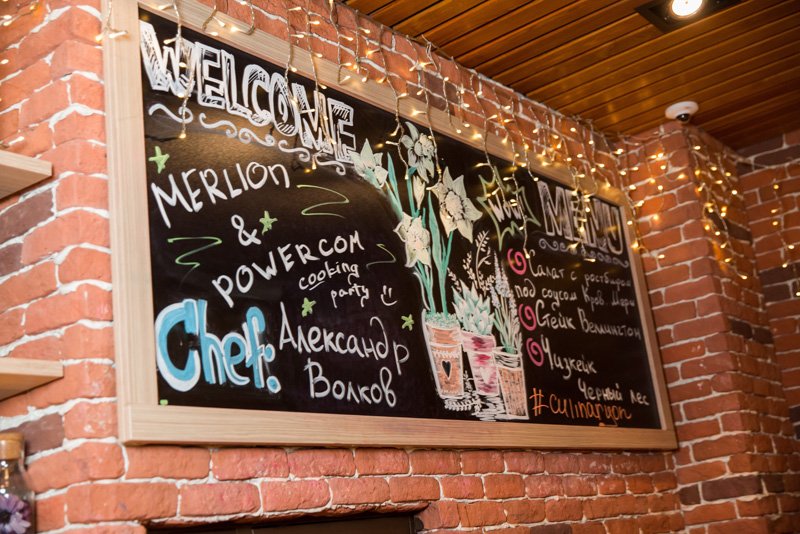 WELCOME
MERLION
&
POWERCOM
cooking
party :)
Chef: Александр
Волков
MENU
Салат с ростбифом
под соусом Кров Мэри
Стейк Веллингтон
Чизкейк
Черный лес
#culinaryon